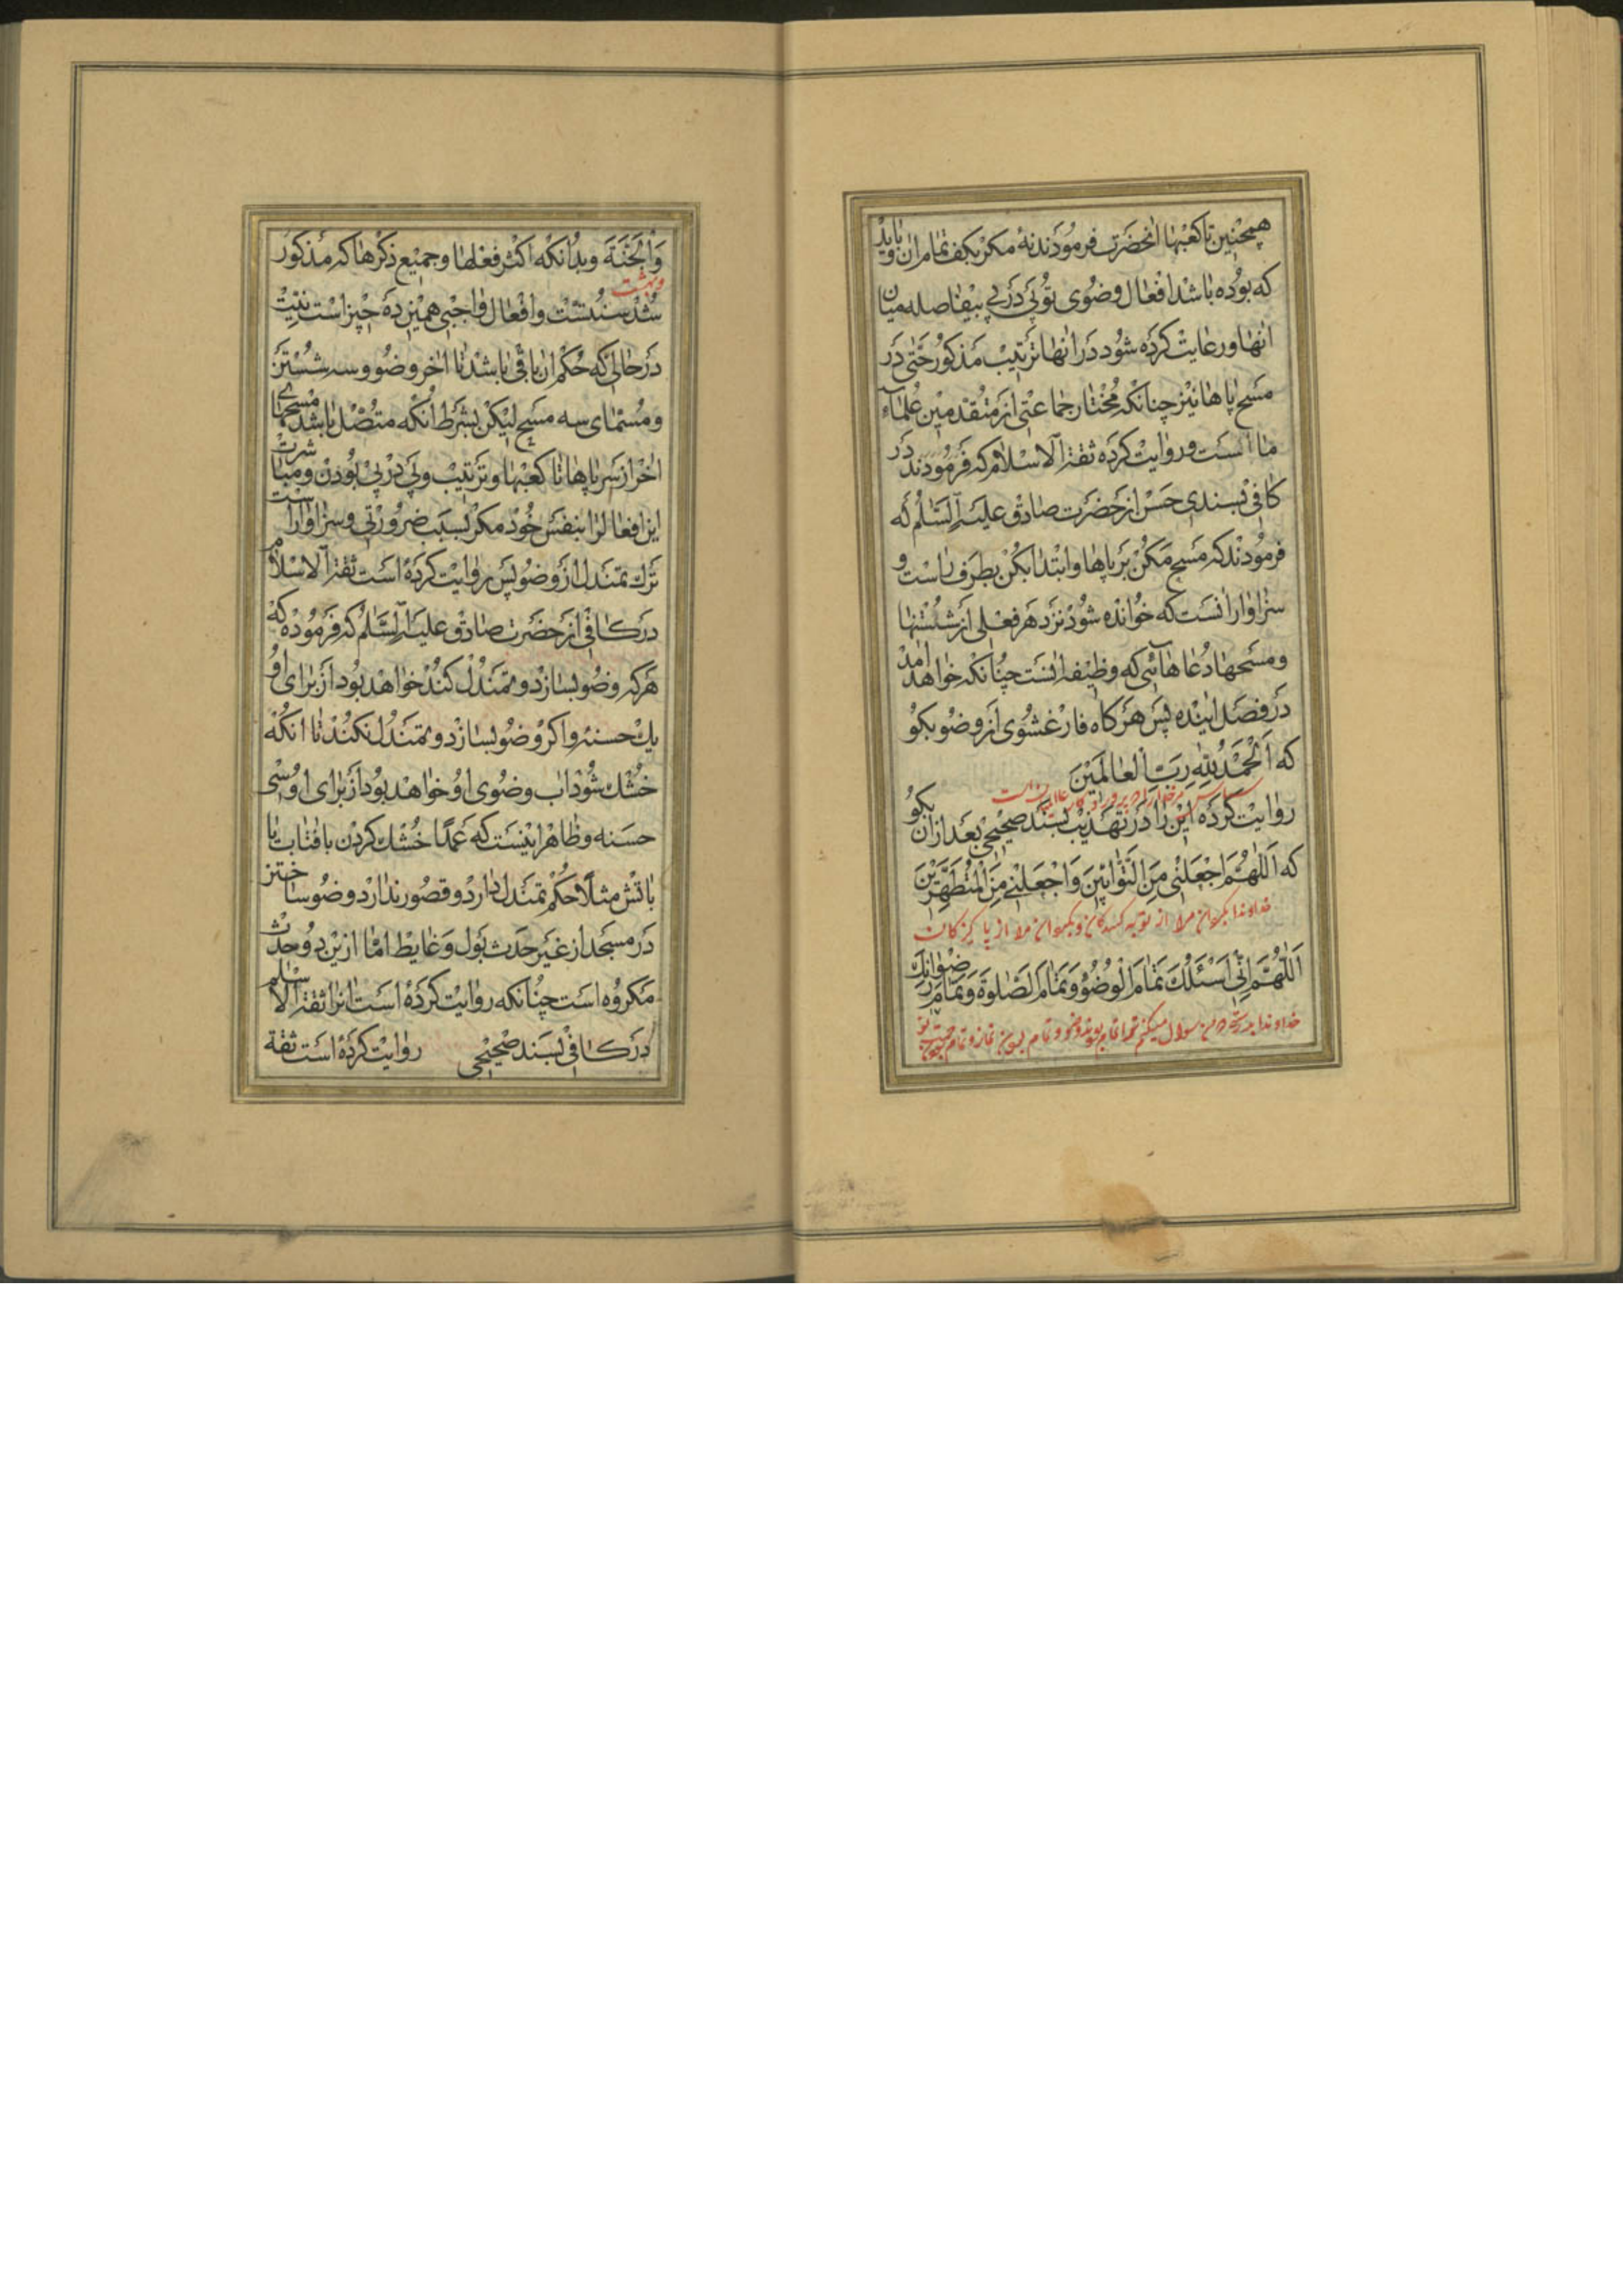 همچنین تا کعبها انحضرت فرمودند نه مکر بکف تمام ان و باید
که بوده باشد افعال وضوی تو پی در پی بیفاصله میان
انها و رعایت کرده شود در انها ترتیب مذکور حتی در
مسح پاها نیز چنانکه مختار جماعتی از متقدمین علماء
ما است و روایت کرده ثقة الاسلام که فرمودند در
کافی بسندی حسن از حضرت صادق علیه السلم که
فرمودند که مسح مکن بر پاها و ابتدا بکن بطرف راست و
سزاوار انست که خوانده شود نزد هر فعلی از شستنها
و مسحها دعاهائی که وظیفه انست چنانکه خواهد امد
در فصل اینده پس هر کاه فارغ شوی از وضو بکو
که اَلْحَمْدُ لِلّٰهِ رَبِّ الْعالَمينَ
روایت کرده این را در تهذیب بسند صحیحی بعد از ان بکو
که اَللّٰهُمَّ اجْعَلْنی مِنَ التَّوّابینَ وَاجْعَلْنی مِنَ الْمُتَطَهِّرینَ
خداوندا بکردان مرا از توبه کنندکان و بکردان مرا از پاکیزکان
اَللّٰهُمَّ اِنّی اَسْئَلُکَ تَمامَ الْوُضُوءِ وَتَمامَ الصَّلوةِ وَتَمامَ رِضْوانِکَ
خداوندا بدرستی که من سؤال میکنم ترا تمام بودن وضو و تمام بودن نماز و تمام
وَالْجَنَّةَ و بدانکه اکثر فعلها و جمیع ذکرها که مذکور
و بهشت
شد سنتست و افعال واجبی همین ده چیز است نیت
در حالی که حکم ان باقی باشد تا اخر وضو و سه شستن
و مسمای سه مسح لیکن بشرط انکه متصل باشد مسحهای
اخر از سر پاها تا کعبها و ترتیب و پی در پی بودن و مباشرت
این افعال را بنفس خود مکر بسبب ضرورتی و سزاوار است
ترک تمندل از وضو پس روایت کرده است ثقة الاسلام
در کافی از حضرت صادق علیه السلم که فرموده که
هر که وضو بسازد و تمندل کند خواهد بود از برای او
یک حسنه و اکر وضو بسازد و تمندل نکند تا انکه
خشک شود اب وضوی او خواهد بود از برای او سی
حسنه و ظاهر اینست که عمدا خشک کردن بافتاب یا
باتش مثلا حکم تمندل دارد و قصور ندارد وضو ساختن
در مسجد از غیر حدث بول و غایط اما ازین دو حدث
مکروه است چنانکه روایت کرده است انرا ثقة الاسلام
در کافی بسند صحیحی روایت کرده است ثقة